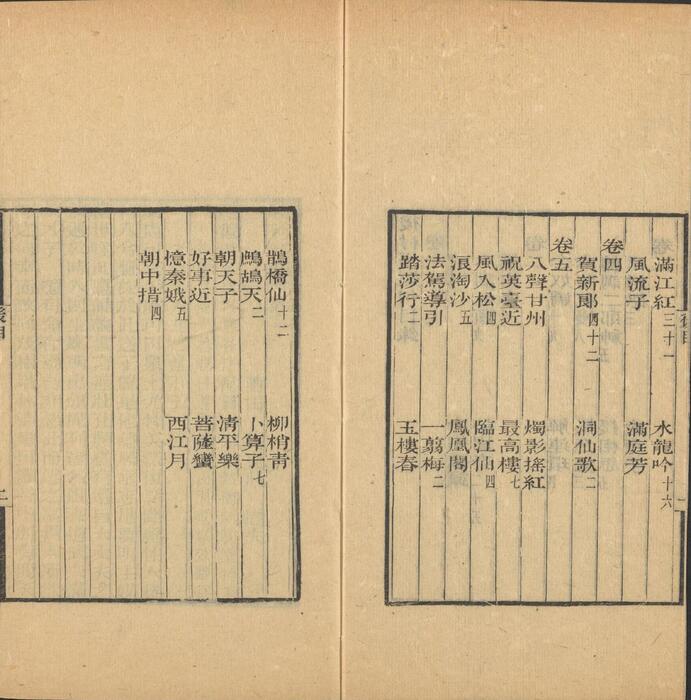 滿江紅三十一 水龍吟十六
風流子 滿庭芳
卷四
賀新郎四十二 洞仙歌二
卷五
八聲甘州 燭影搖紅
祝英臺近 最高樓七
風入松四 臨江仙四
浪淘沙五 鳳凰閣
法駕導引 一翦梅二
踏莎行二 玉樓春
鵲橋仙十二 柳梢青
鷓鴣天二 卜算子七
朝天子 清平樂
好事近 菩薩蠻
憶秦娥五 西江月
朝中措四
後目
二